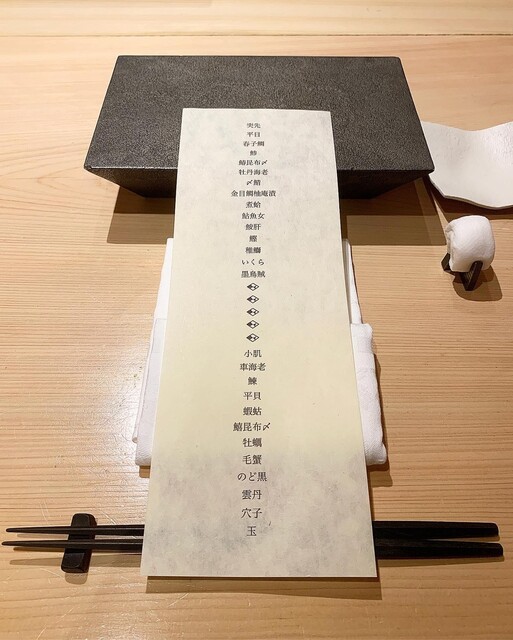 突先
平目
春子鯛
鱚昆布〆
牡丹海老
〆鯖
金目鯛柚庵漬
煮蛤
鮎魚女
鮟肝
鰹
稚鰤
いくら
墨烏賊
小肌
車海老
鰊
平貝
蝦蛄
鱚昆布〆
牡蠣
毛蟹
のど黒
雲丹
穴子
玉